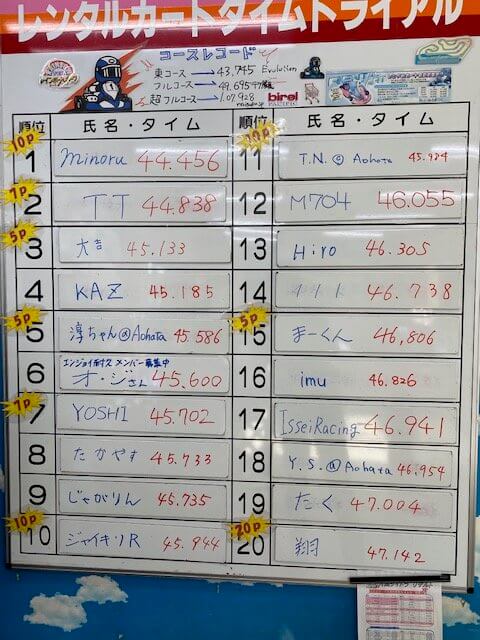 レンタルカートタイムトライアル
コースレコード
東コース → 43,745 Evolution
フルコース → 49,695
超フルコース → 1,07,928
birel
順位 氏名・タイム
10P
1 Minoru 44.456
1P
2 TT 44.838
5P
3 大吉 45.133
4 KAZ 45.185
5P
5 淳ちゃん@Aohata 45.586
エンジョイ耐久 メンバー募集中
6 オ・ジさん 45.600
1P
7 YOSHI 45.702
8 たかやす 45.733
9 じゃがりん 45.735
10P
10 ジャイキリR 45.944
順位 氏名・タイム
10P
11 T.N.@Aohata 45.984
12 M704 46.055
13 Hiro 46.305
14 46.738
5P
15 まーくん 46,806
16 imu 46.826
17 IsseiRacing 46.941
18 Y.S.@Aohata 46.954
19 たく 47.004
20P
20 翔 47.142